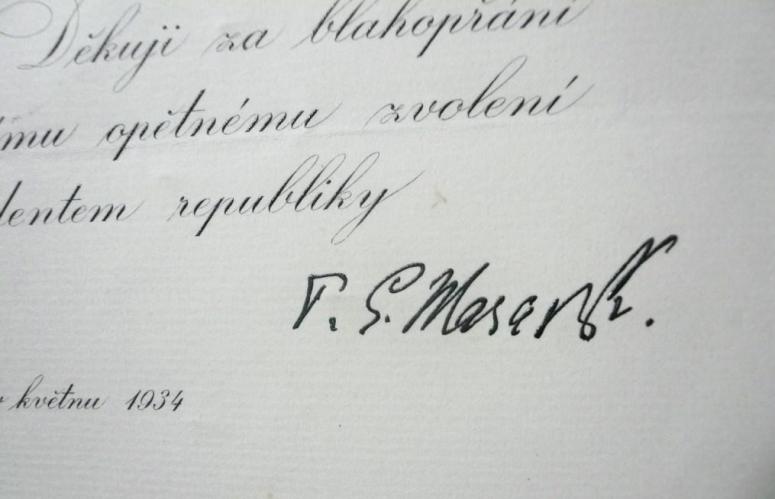 Děkuji za blahopřání
ému opětnému zvolení
dentem republiky
T. G. Masaryk.
v květnu 1934